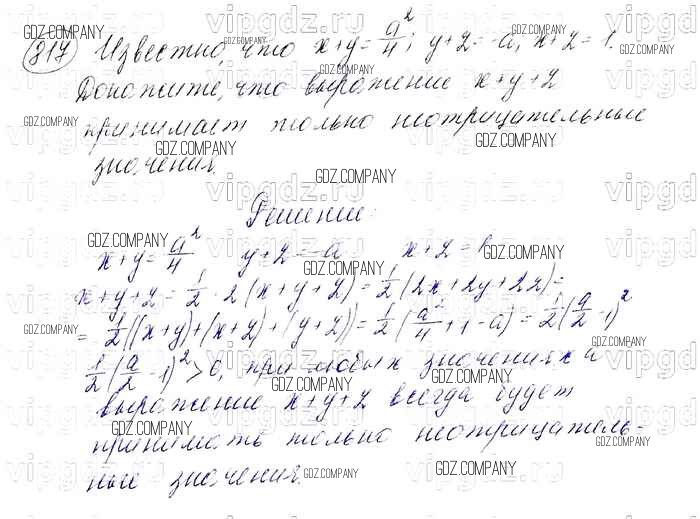 817 Известно, что x+y=a²/4; y+z=-a, x+z=1.
Докажите, что выражение x+y+z
принимает только неотрицательные
значения.
Решение:
x+y=a²/4 y+z=-a x+z=1
x+y+z=1/2·2(x+y+z)=1/2(2x+2y+2z)=
=1/2((x+y)+(x+z)+(y+z))=1/2(a²/4+1-a)=1/2(a/2-1)²
1/2(a/2-1)²>0, при любых значениях a
выражение x+y+z всегда будет
принимать только неотрицатель-
ные значения.